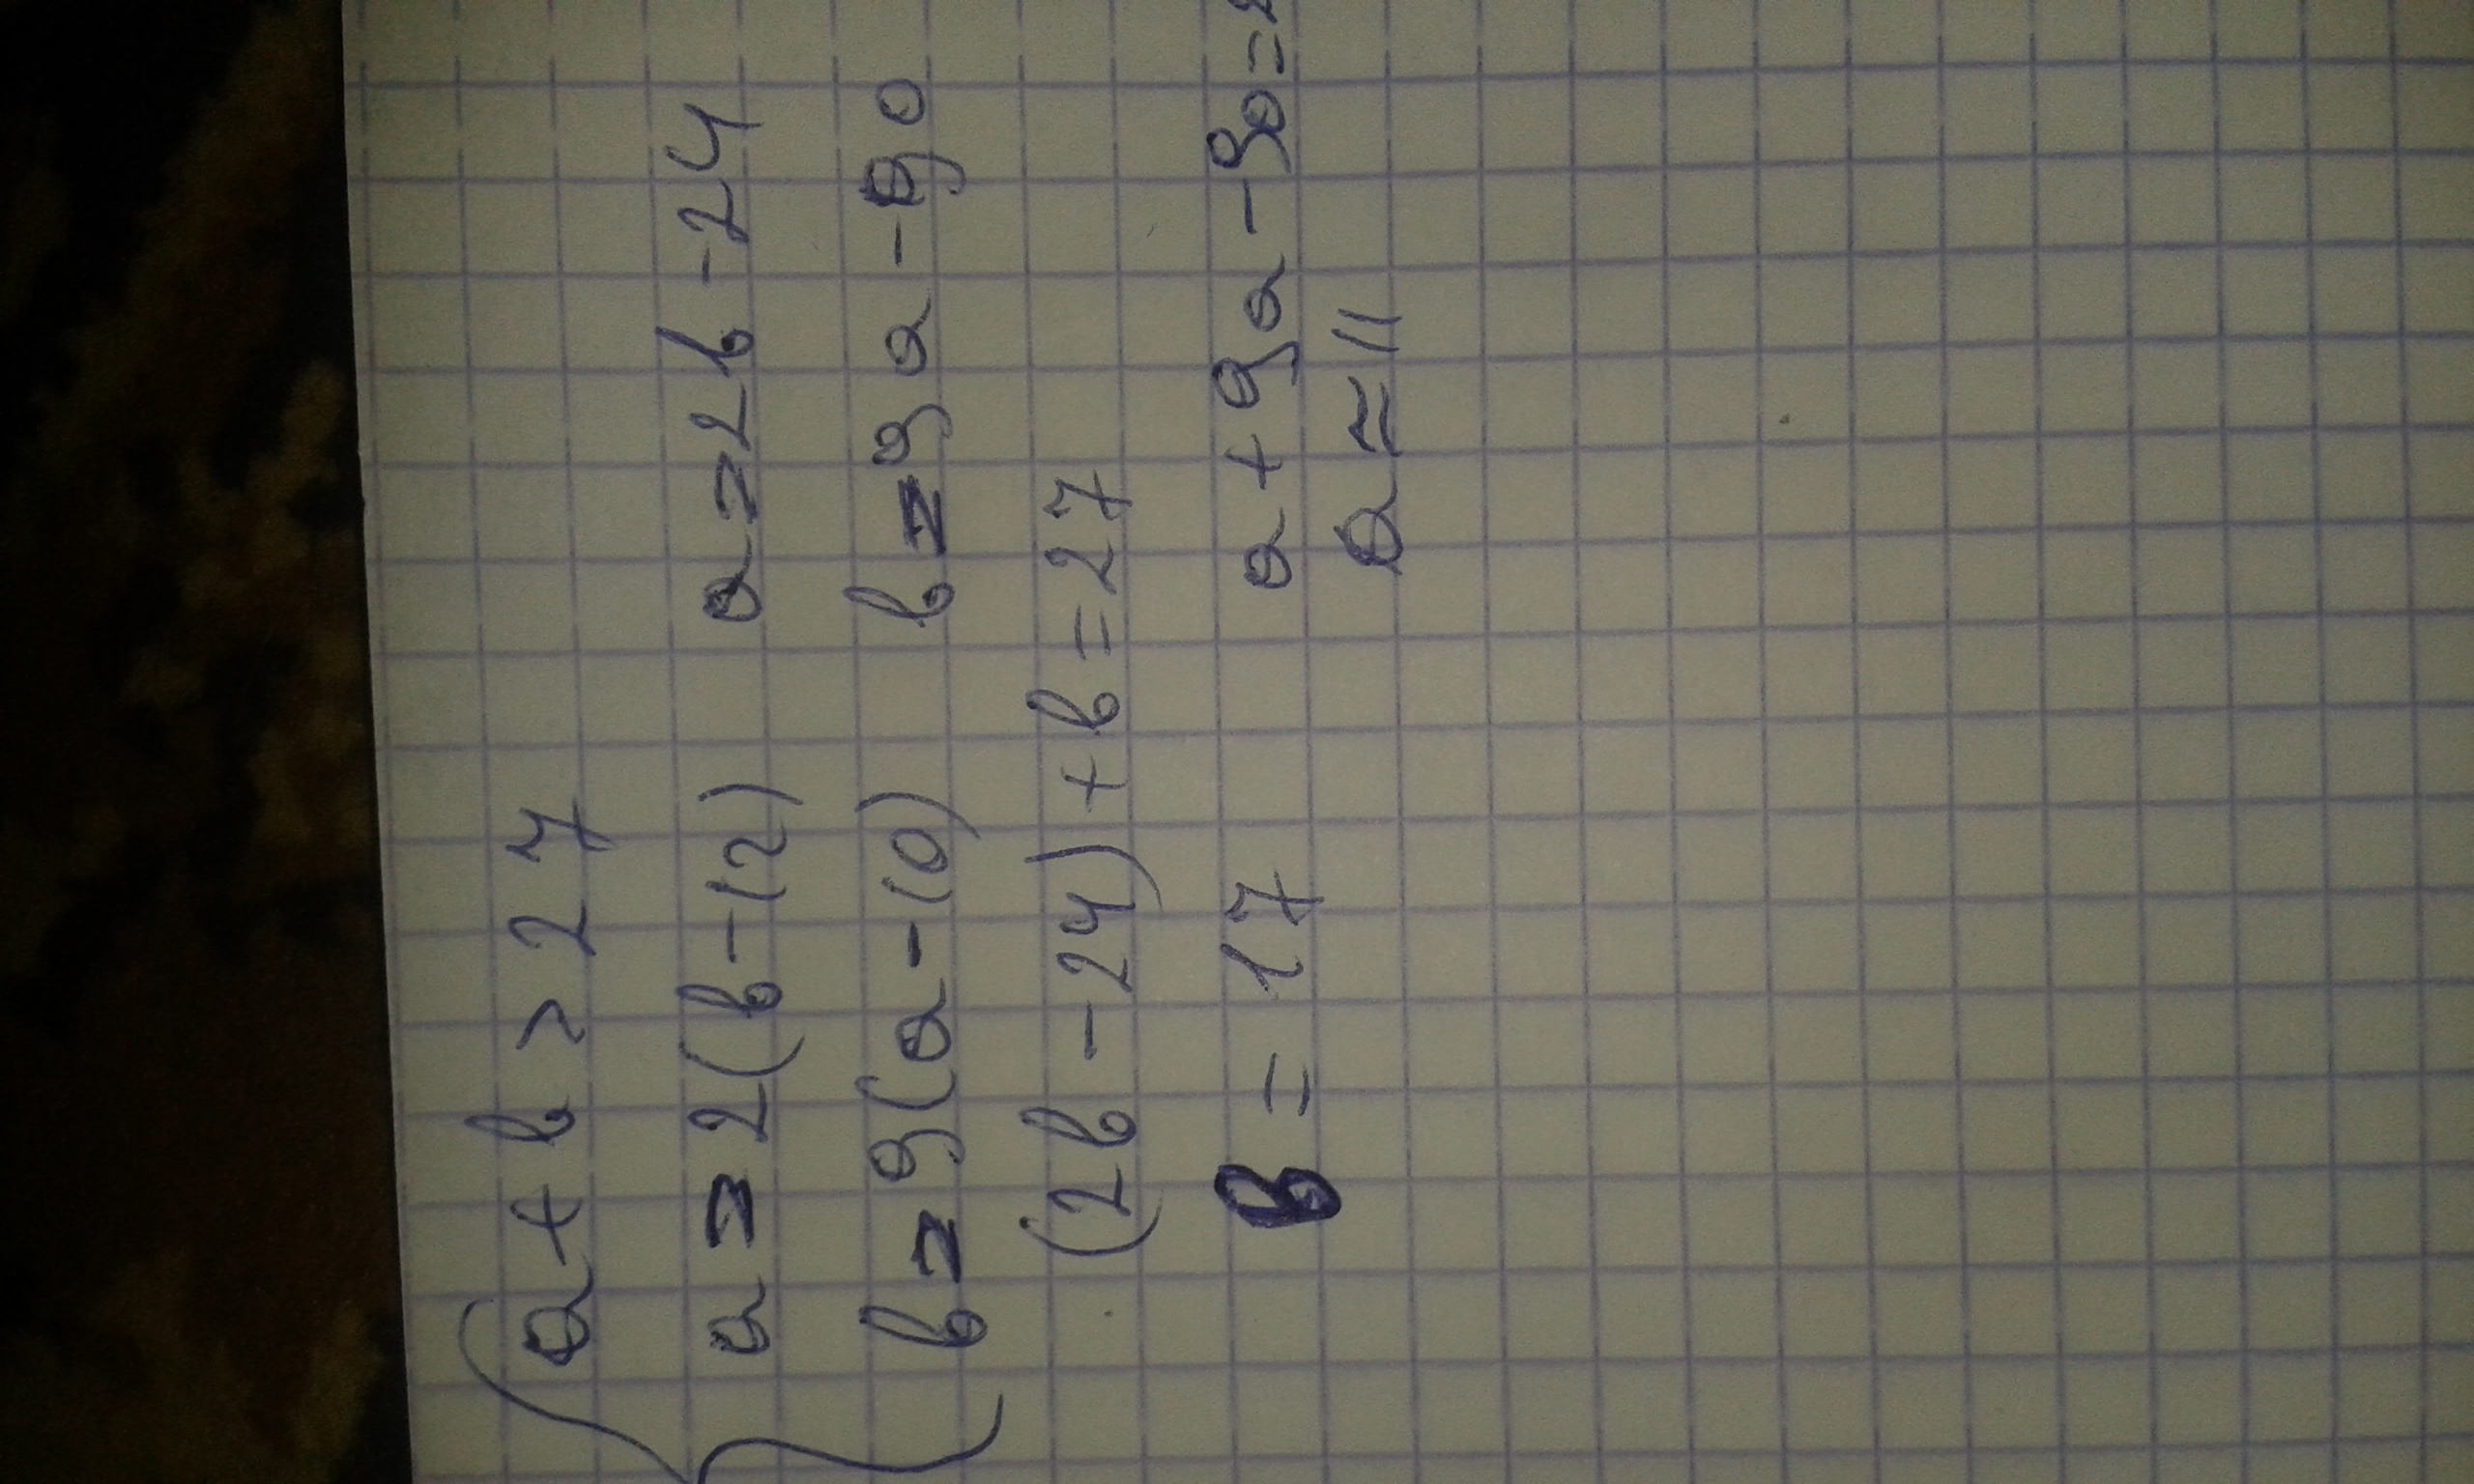 a + b > 27
a = 2(b - 12) a = 2b - 24
b = 9(a - 10) b = 9a - 90
(2b - 24) + b = 27
b = 17 a + 9a - 90 =
a ≈ 11